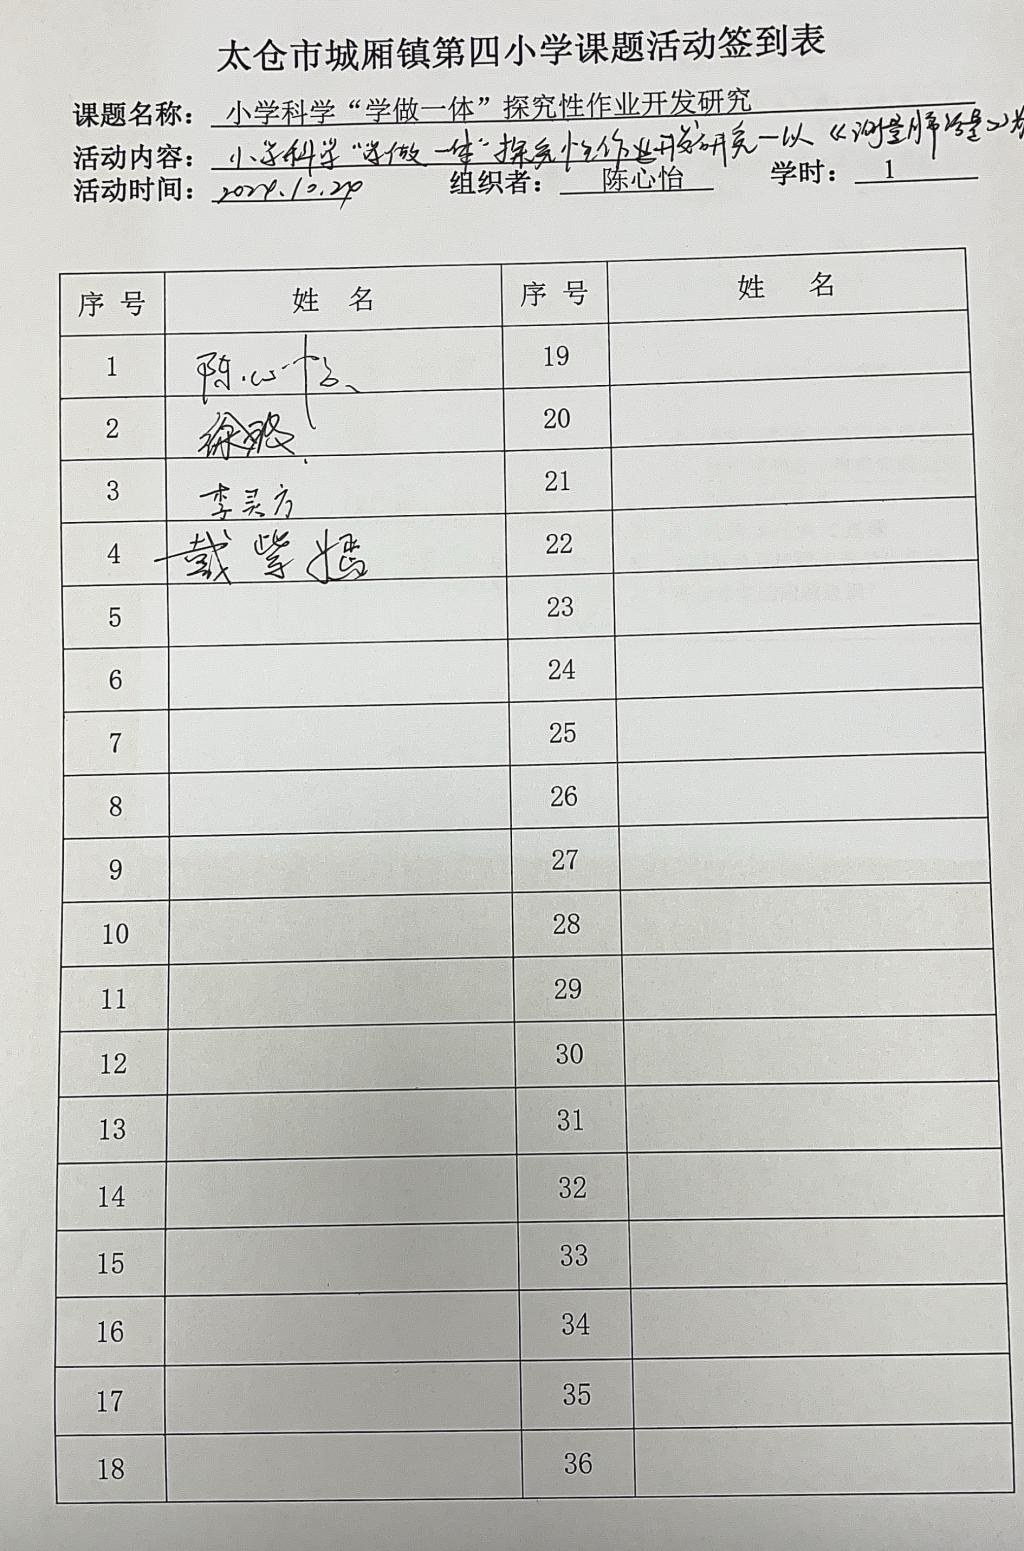 太仓市城厢镇第四小学课题活动签到表
课题名称： 小学科学“学做一体”探究性作业开发研究
活动内容： 小学科学“学做一体”探究性作业开发研究—以《测量肺活量》为
活动时间： 2024.10.24 组织者： 陈心怡 学时： 1
序号 姓 名 序号 姓 名
1 陈心怡 19
2 徐 20
3 李灵方 21
4 戴紫嫣 22
5 23
6 24
7 25
8 26
9 27
10 28
11 29
12 30
13 31
14 32
15 33
16 34
17 35
18 36